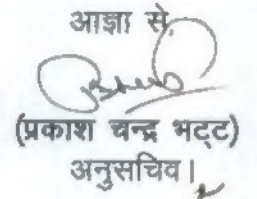 आज्ञा से,
(प्रकाश चन्द्र भट्ट)
अनुसचिव।